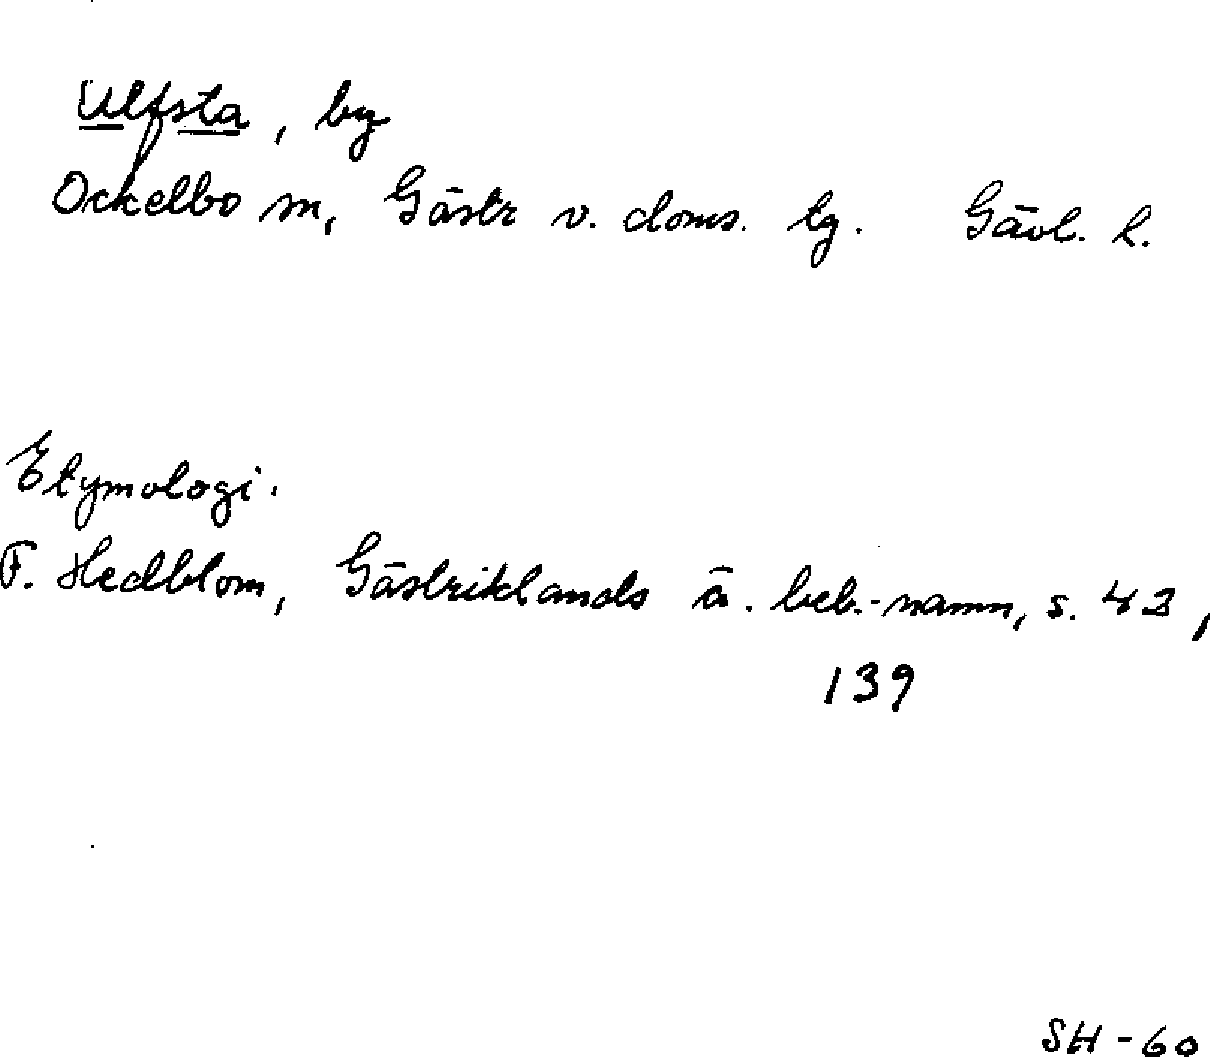 Ulfsta, by
Ockelbo sn, Gästr v. doms. tg. Gävl. l.
Etymologi.
F. Hedblom, Gästriklands ä. beb.-namn, s. 43,
139
SH-60